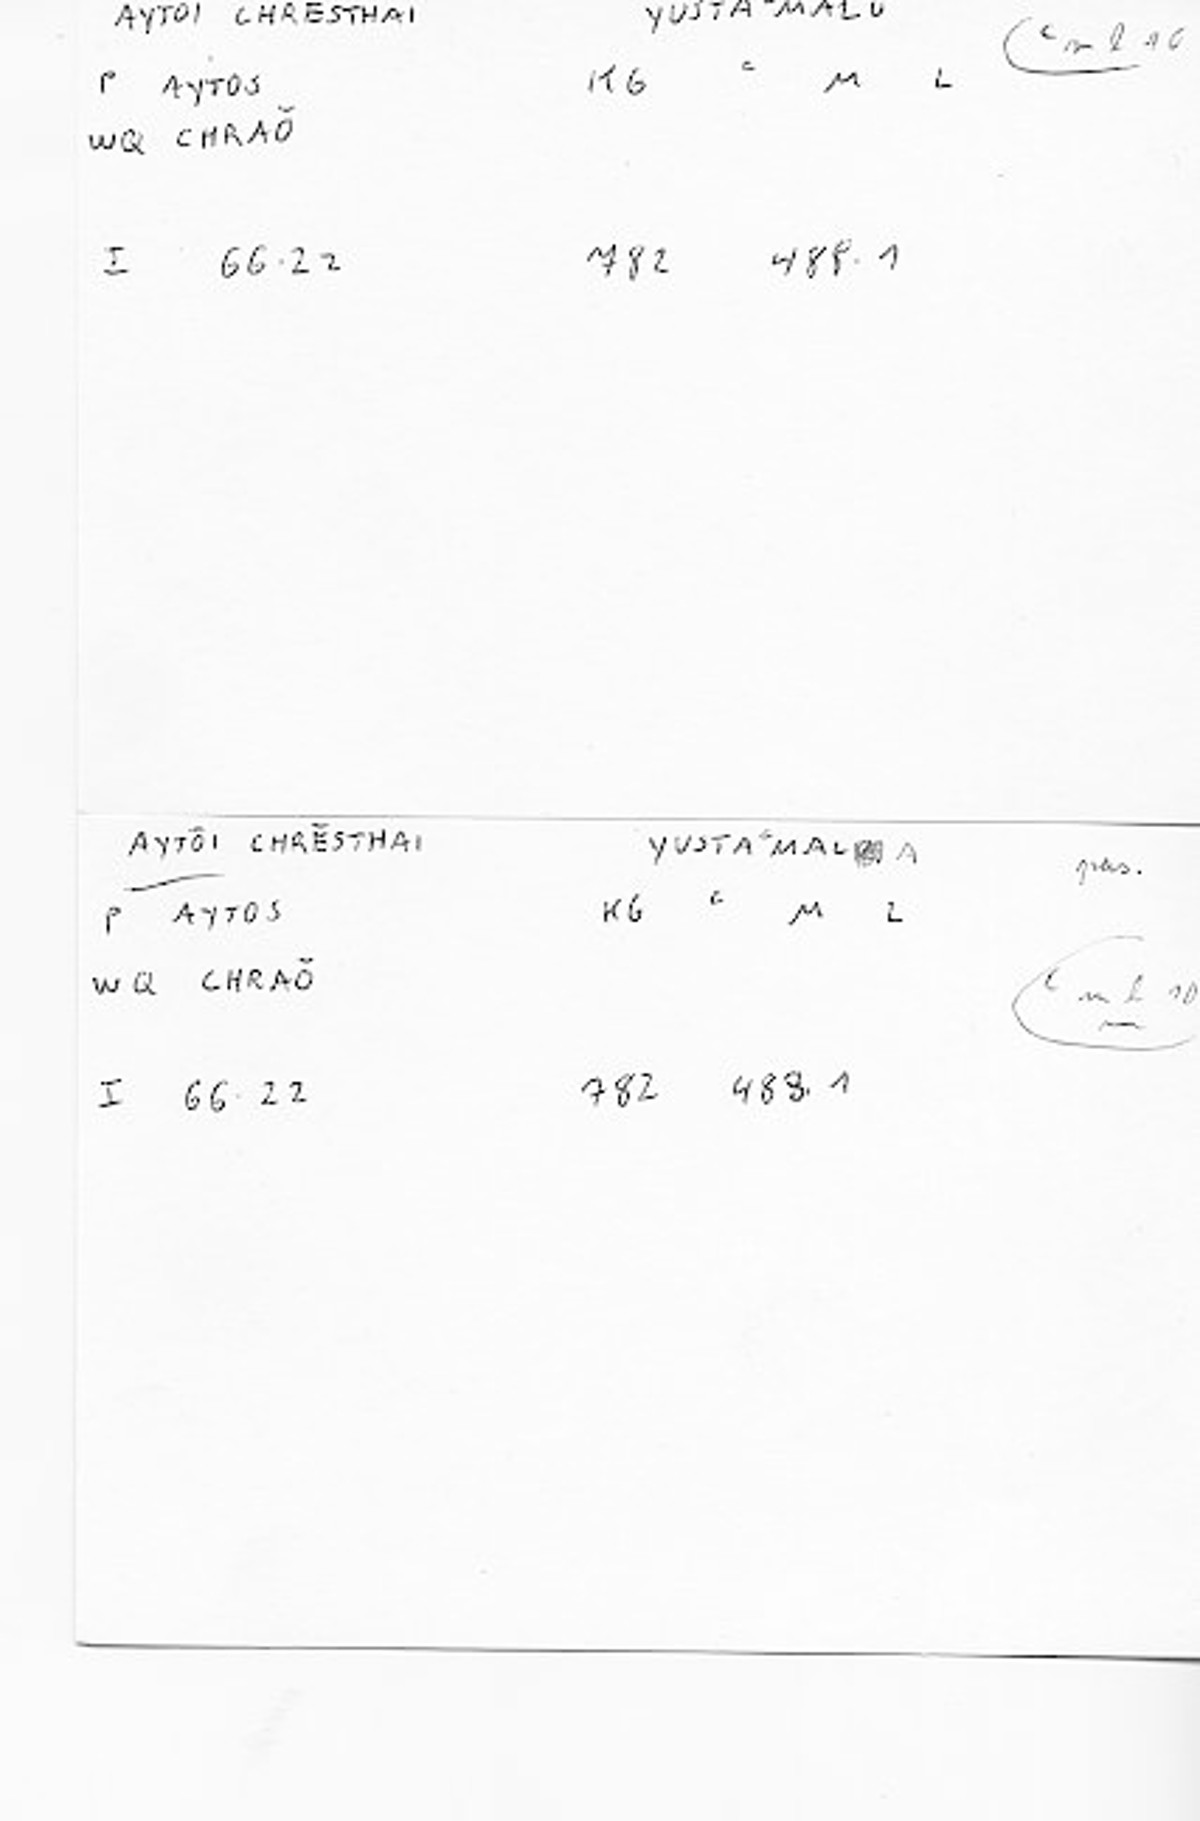 AYTOI CHRESTHAI YUSTAᶜMALU
P AYTOS KG ᶜ M L ᶜ m l 10
WQ CHRAŎ
I 66.22 782 488.1
AYTŌI CHRĔSTHAI YUSTAᶜMAL A
pas.
P AYTOS KG ᶜ M L
WQ CHRAŎ ᶜ m l 10
I 66.22 782 488.1